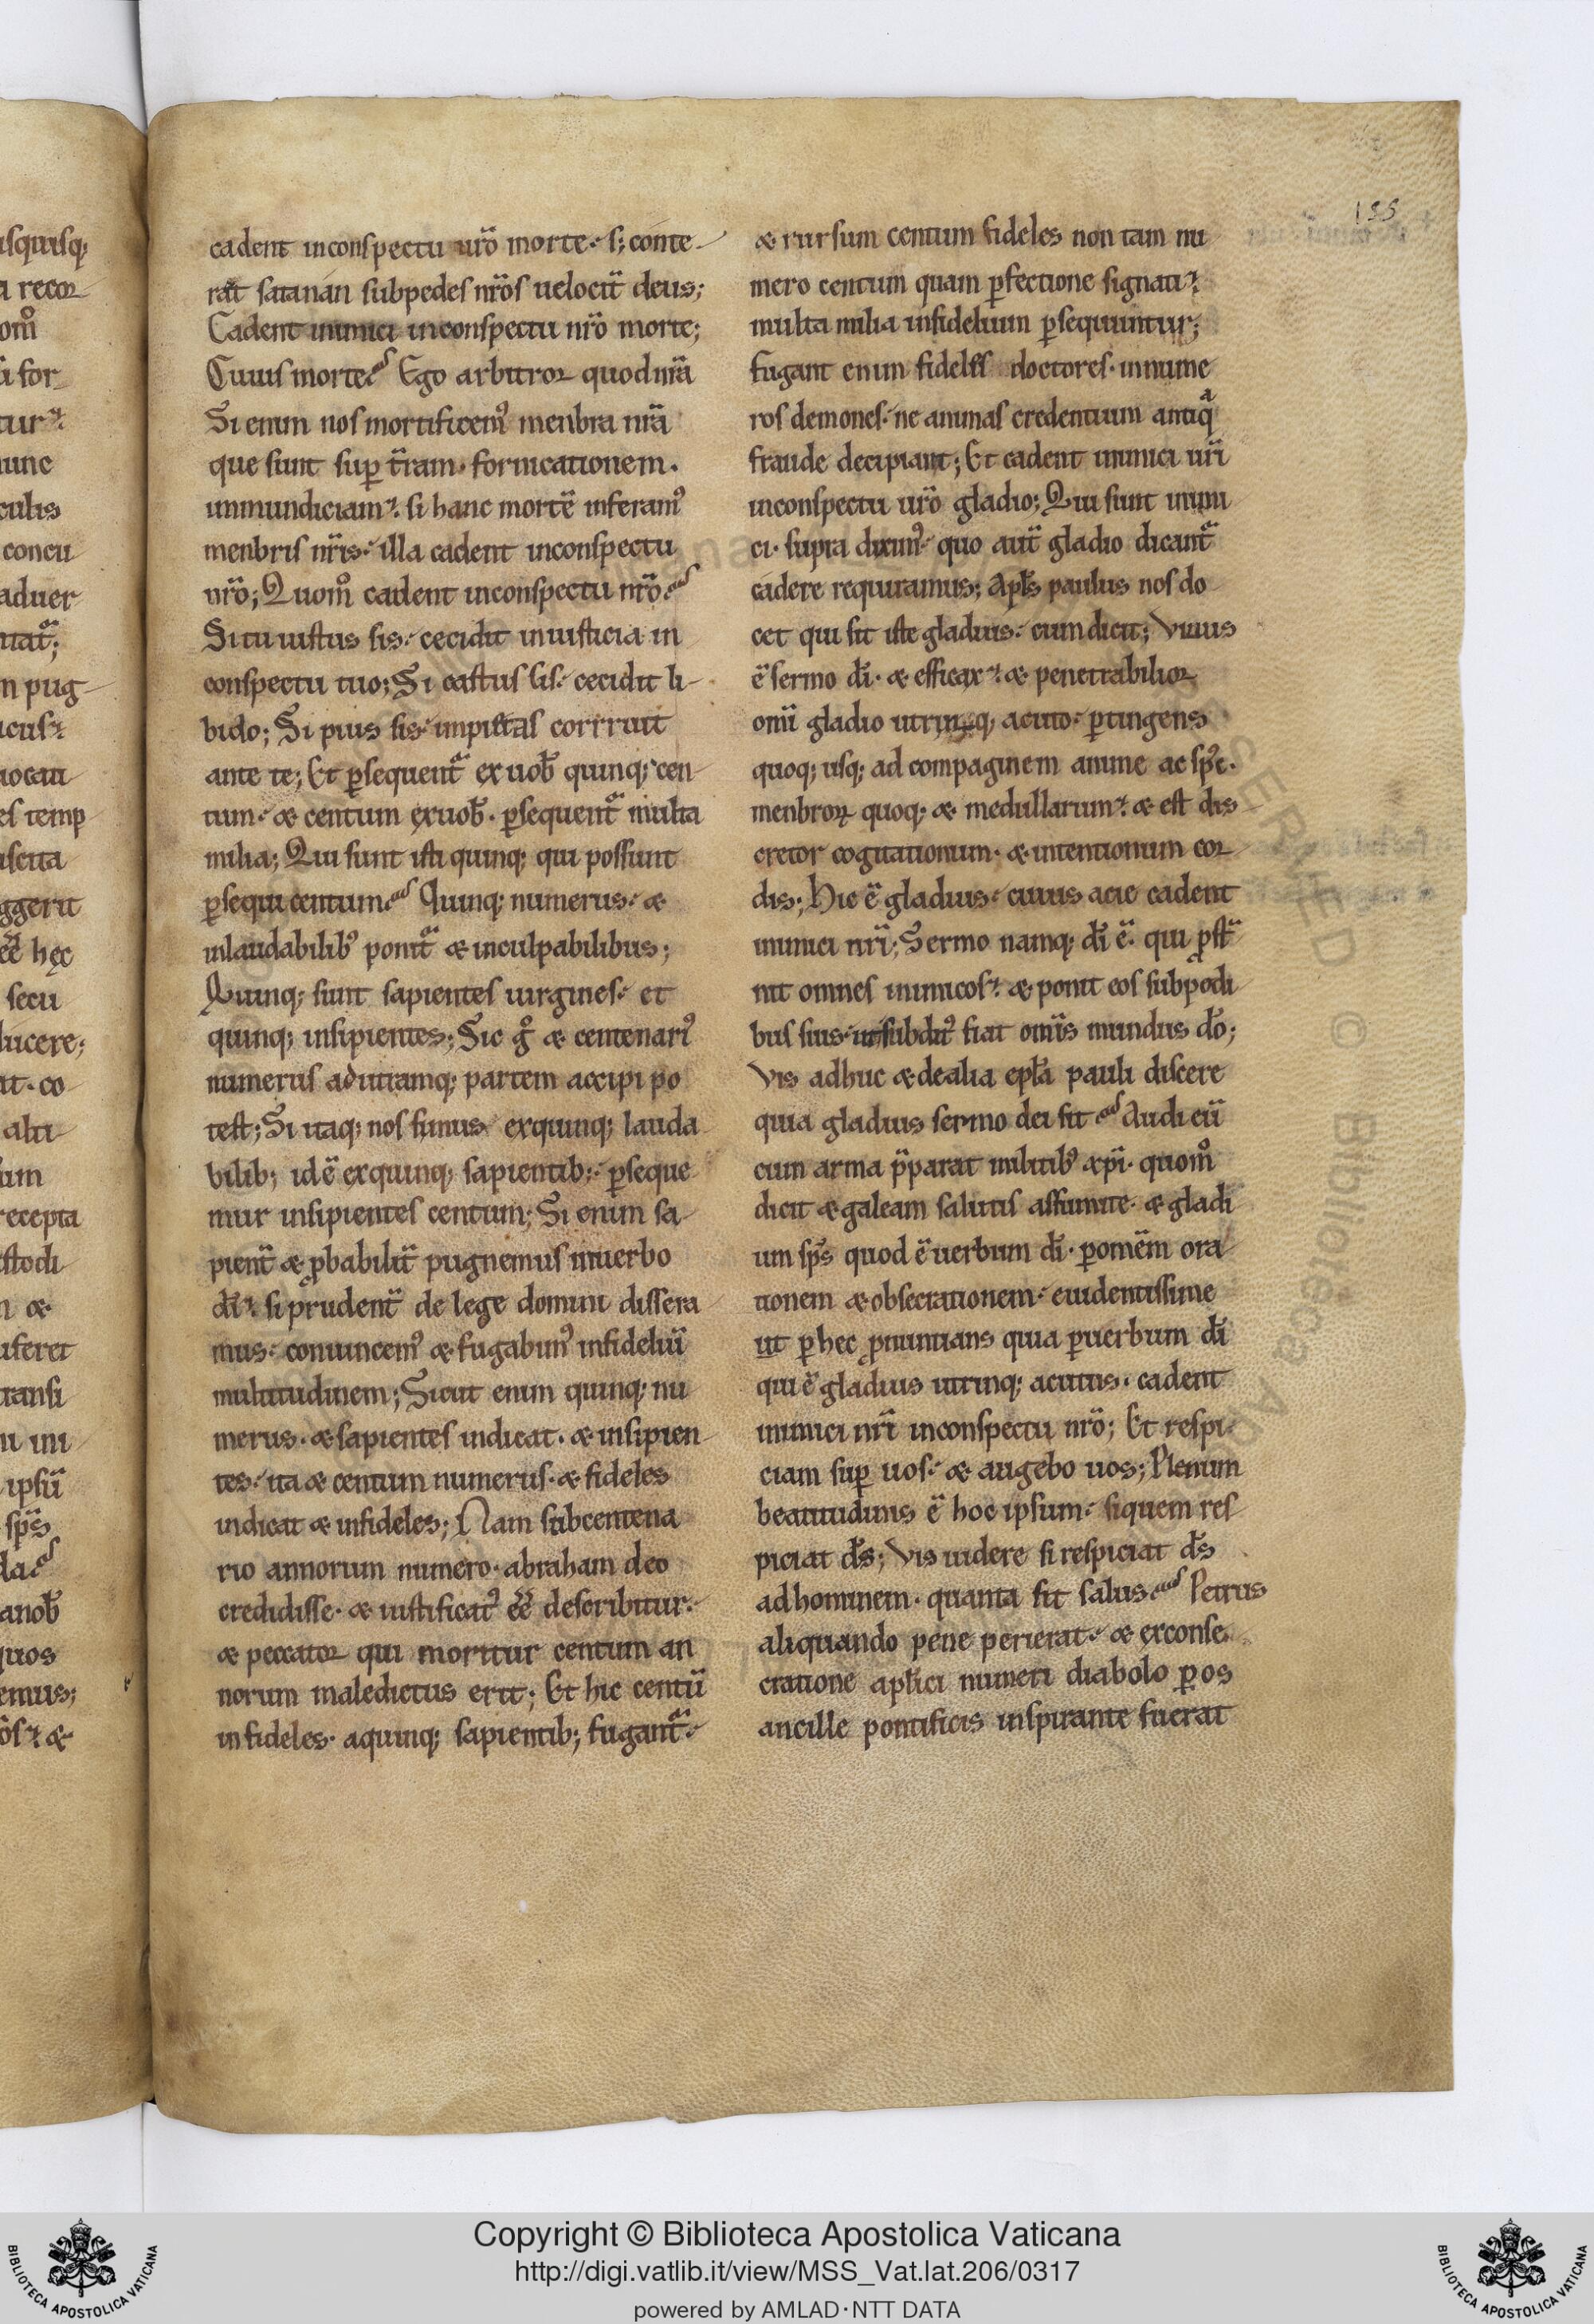 155
cadent inconspectu ur̄o morte. s; conte
rat satanan subpedes nr̄os uelocit̄ deus;
Cadent inimici inconspectu nr̄o morte;
Cuius morte? Ego arbitror quod nr̄a
Si enim nos mortificem᾽ menbra nr̄a
que sunt sup̱ t̄ram. fornicationem.
inmundiciam. si hanc mortē inferam᾽
menbris nr̄is. illa cadent inconspectu
nr̄o; Quom̊ cadent inconspectu nr̄o?
Si tu iustus sis. cecidit iniusticia in
conspectu tuo; Si castus sis. cecidit li
bido; Si pius sis. impietas corrruit
ante te; Et ꝑsequent᷑ ex uob̄ quinq; cen
tum. æ centum ex uob̄. ꝑsequent᷑ multa
milia; Qui sunt isti quinq; qui possunt
ꝑsequi centum? Quinq; numerus. æ
inlaudabilib᾽ ponit᷑ æ inculpabilibus;
Quinq; sunt sapientes uirgines. et
quinq; insipientes; Sic g̊ æ centenari᾽
numerus ad utramq; partem accipi po
test; Si itaq; nos simus exquinq; lauda
bilib; id ē exquinq; sapientib; ꝑseque
mur insipientes centum; Si enim sa
pient̄ æ ꝓbabilit̄ pugnemus inuerbo
dī. si prudent̄ de lege domini dissera
mus. conuincem᾽ æ fugabim᾽ infideliū
multitudinem; Sicut enim quinq; nu
merus. æ sapientes indicat. æ insipien
tes. ita æ centum numerus. æ fideles
indicat æ infideles; Nam subcentena
rio annorum numero. abraham deo
credidisse. æ iustificat᾽ eē describitur.
æ peccator qui moritur centum an
norum maledictus erit; Et hic centū
infideles. aquinq; sapientib; fugant᷑.
æ rursum centum fideles non tam nu
mero centum quam ꝑfectione signati.
multa milia infidelium ꝑsequuntur;
fugant enim fideles doctores. innume
ros demones. ne animas credentium antiqa
fraude decipiant; Et cadent inimici ur̄i
inconspectu ur̄o gladio; Qui sunt inimi
ci. supra diximᾁ. quo aut̄ gladio dicant᷑
cadere requiramus; Apl̄s paulus nos do
cet qui sit iste gladius. cum dicit; Viuus
ē sermo dī. æ efficax. æ penetrabilior
omī gladio utrinq; acuto. ꝑtingens
quoq; usq; ad compaginem anime ac sp̄c.
menbroꝝ quoq; æ medullarum. æ est dis
cretor cogitationum. æ intentionum cor
dis; Hic ē gladius. cuius acie cadent
inimici nr̄i; Sermo namq; dī ē. qui ꝓst᷑
nit omnes inimicos. æ ponit eos subpedi
bus suis. ut subdit᾽ fiat omīs mundus dō;
Vis adhuc æ dealia epl̄a pauli discere
quia gladius sermo dei sit? Audi eū
cum arma p̄parat militib᾽ xp̄i. quom̊
dicit æ galeam salutis assumite. æ gladi
um sp̄s quod ē uerbum dī. ꝑ omēm ora
tionem æ obsecrationem. euidentissime
ut ꝑ hec ꝓnuntians quia ꝑuerbum dī
qui ē gladius utrinq; acutus. cadent
inimici nr̄i inconspectu nr̄o; Et respi
ciam sup̱ uos. æ augebo uos; Plenum
beatitudinis ē hoc ipsum. siquem res
piciat dś; Vis uidere si respiciat dś
ad hominem. quanta sit salus? Petrus
aliquando pene perierat. æ exconse
cratione apl̄ici numeri diabolo ꝑ os
ancille pontificis inspirante fuerat
Copyright © Biblioteca Apostolica Vaticana
http://digi.vatlib.it/view/MSS_Vat.lat.206/0317
powered by AMLAD·NTT DATA